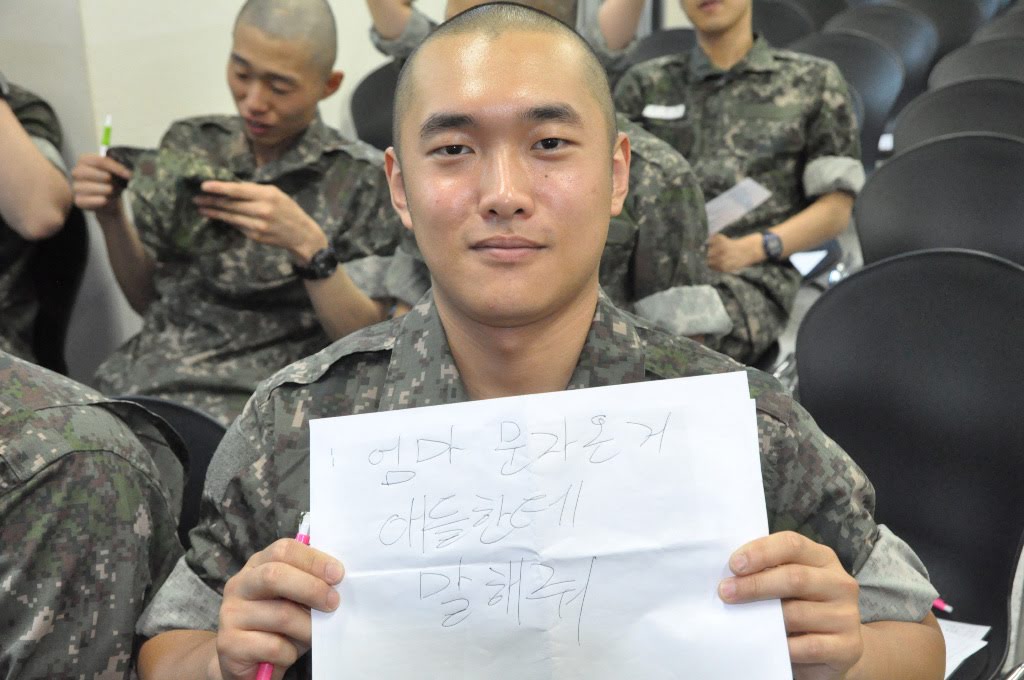 엄마 문자온거
애들한테
말해줘